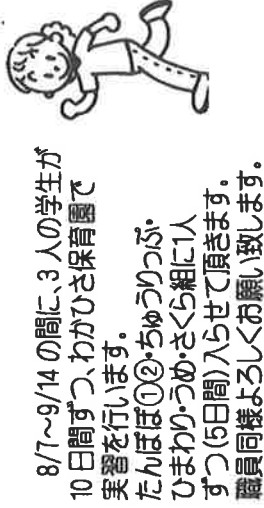 8/7～9/14の間に、3人の学生が
10日間ずつ、わかひさ保育園で
実習を行います。
たんぽぽ①②・ちゅうりっぷ・
ひまわり・うめ・さくら組に1人
ずつ(5日間)入らせて頂きます。
職員同様よろしくお願い致します。